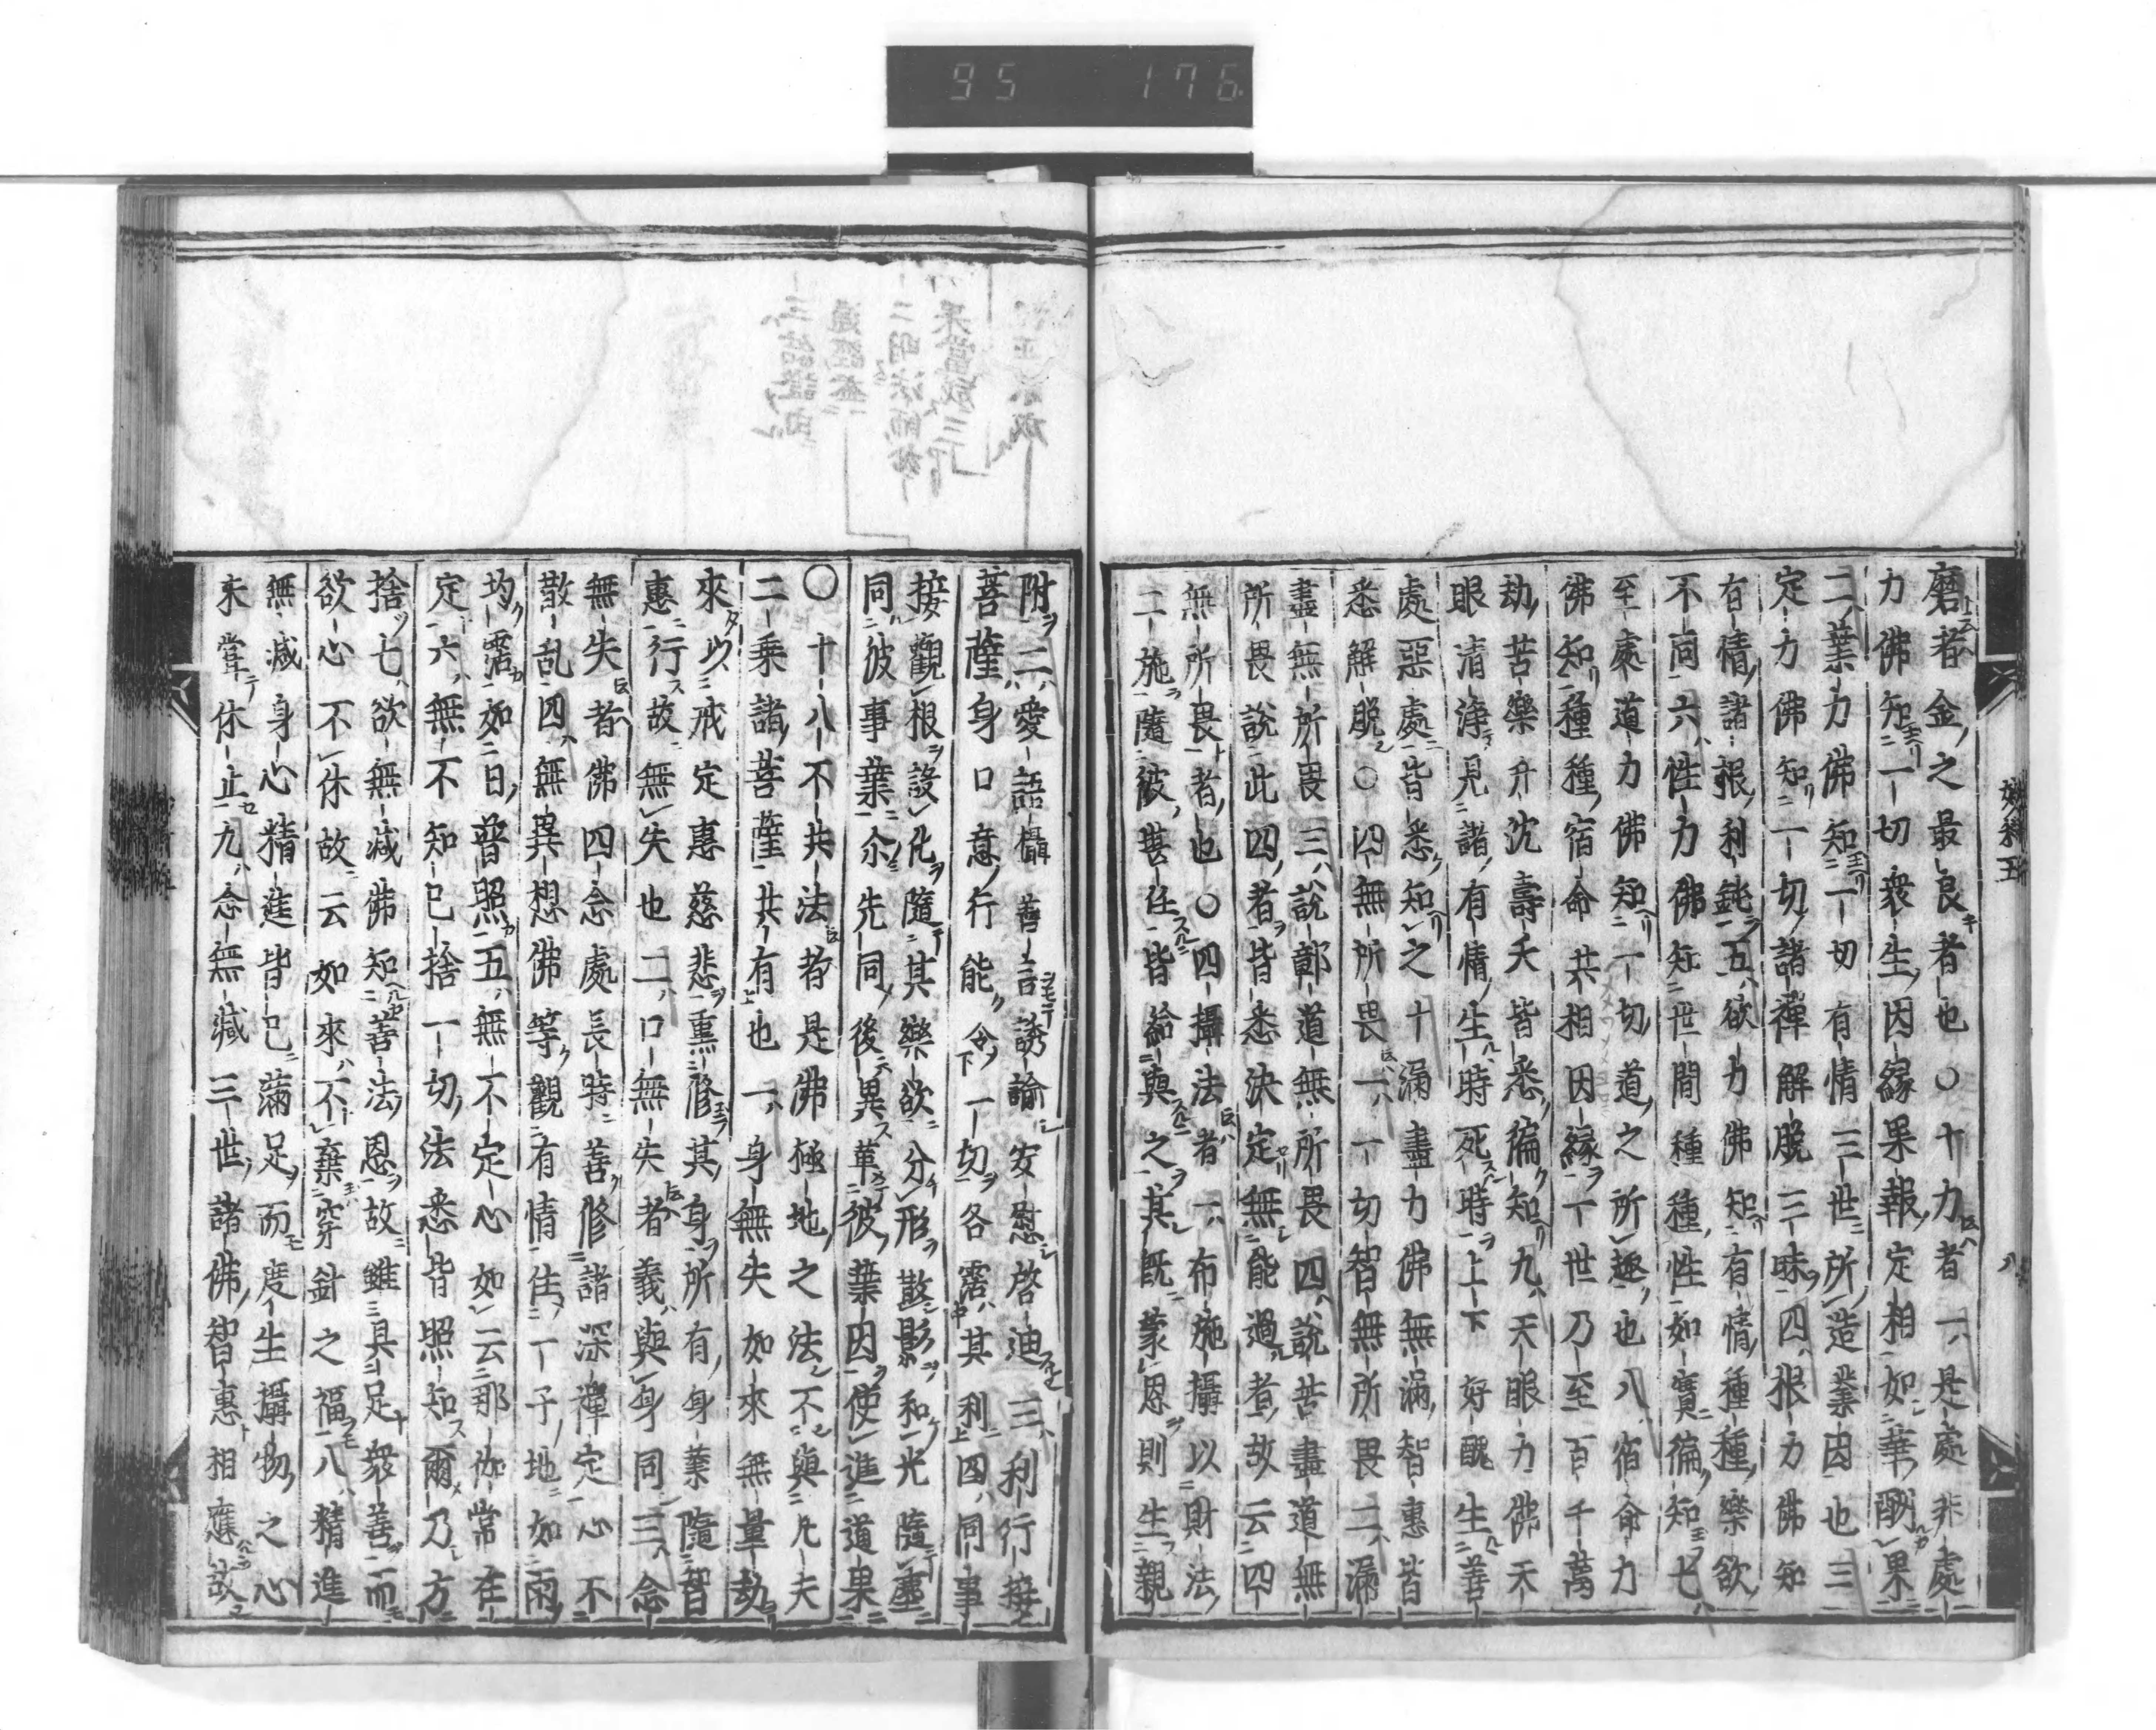 95 176
磨者金之最良者也○十力者一是處非處
力佛知一切衆生因緣果報定相如華酬果
二業力佛知一切有情三世所造業因也三
定力佛知一切諸禪解脫三昧四根力佛知
有情諸根利鈍五欲力佛知有情種種樂欲
不同六性力佛知世間種種性如實徧知七
至處道力佛知一切道之所趣也八宿命力
佛知種種宿命共相因緣一世乃至百千萬
劫苦樂升沈壽夭皆悉徧知九天眼力佛天
眼清淨見諸有情生時死時上下好醜生善
處惡處皆悉知之十漏盡力佛無漏智惠皆
悉解脫○四無所畏一一切智無所畏二漏
盡無所畏三說鄣道無所畏四說苦盡道無
所畏說此四者皆悉決定無能過者故云四
無所畏者也○四攝法者一布施攝以財法
二施隨彼堪任皆給與之其既蒙恩則生親
附二愛語攝善言誘諭安慰啓迪三利行攝
菩薩身口意行能令一切各霑其利四同事
接觀根設化隨其樂欲分形散影和光隨塵
同彼事業尒先同後異革彼業因使進道果
○十八不共法者是佛極地之法不與凡夫
二乘諸菩薩共有也一身無失如來無量劫
來以戒定惠慈悲熏修其身所有身業隨智
惠行故無失也二口無失者義與身同三念
無失者佛四念處長時善修諸深禪定心不
散乱四無異想佛等觀有情住一子地如雨
均霑如日普照五無不定心如云那伽常在
定六無不知已捨一切法悉皆照知爾乃方
捨七欲無減佛知善法恩故雖具足衆善而
欲心不休故云如來不棄穿針之福八精進
無減身心精進皆已滿足而度生攝物之心
未甞休止九念無減三世諸佛智惠相應故